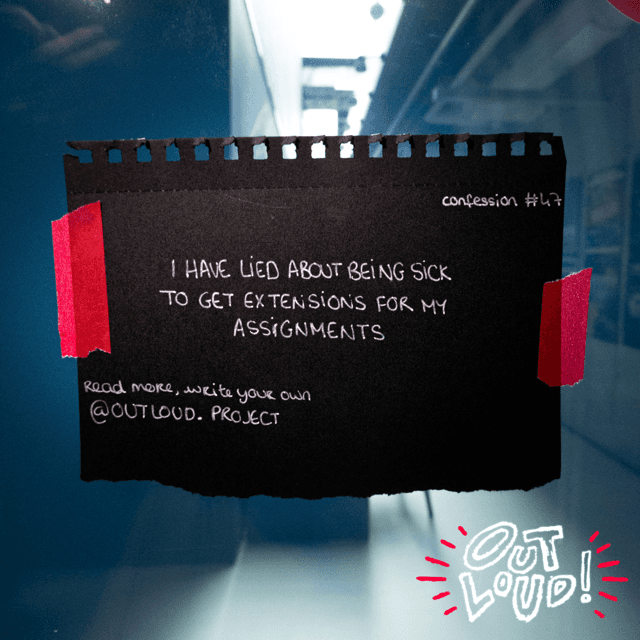 confession #47
I HAVE LIED ABOUT BEING SICK
TO GET EXTENSIONS FOR MY
ASSIGNMENTS
Read more, write your own
@OUTLOUD.PROJECT
OUT
LOUD!